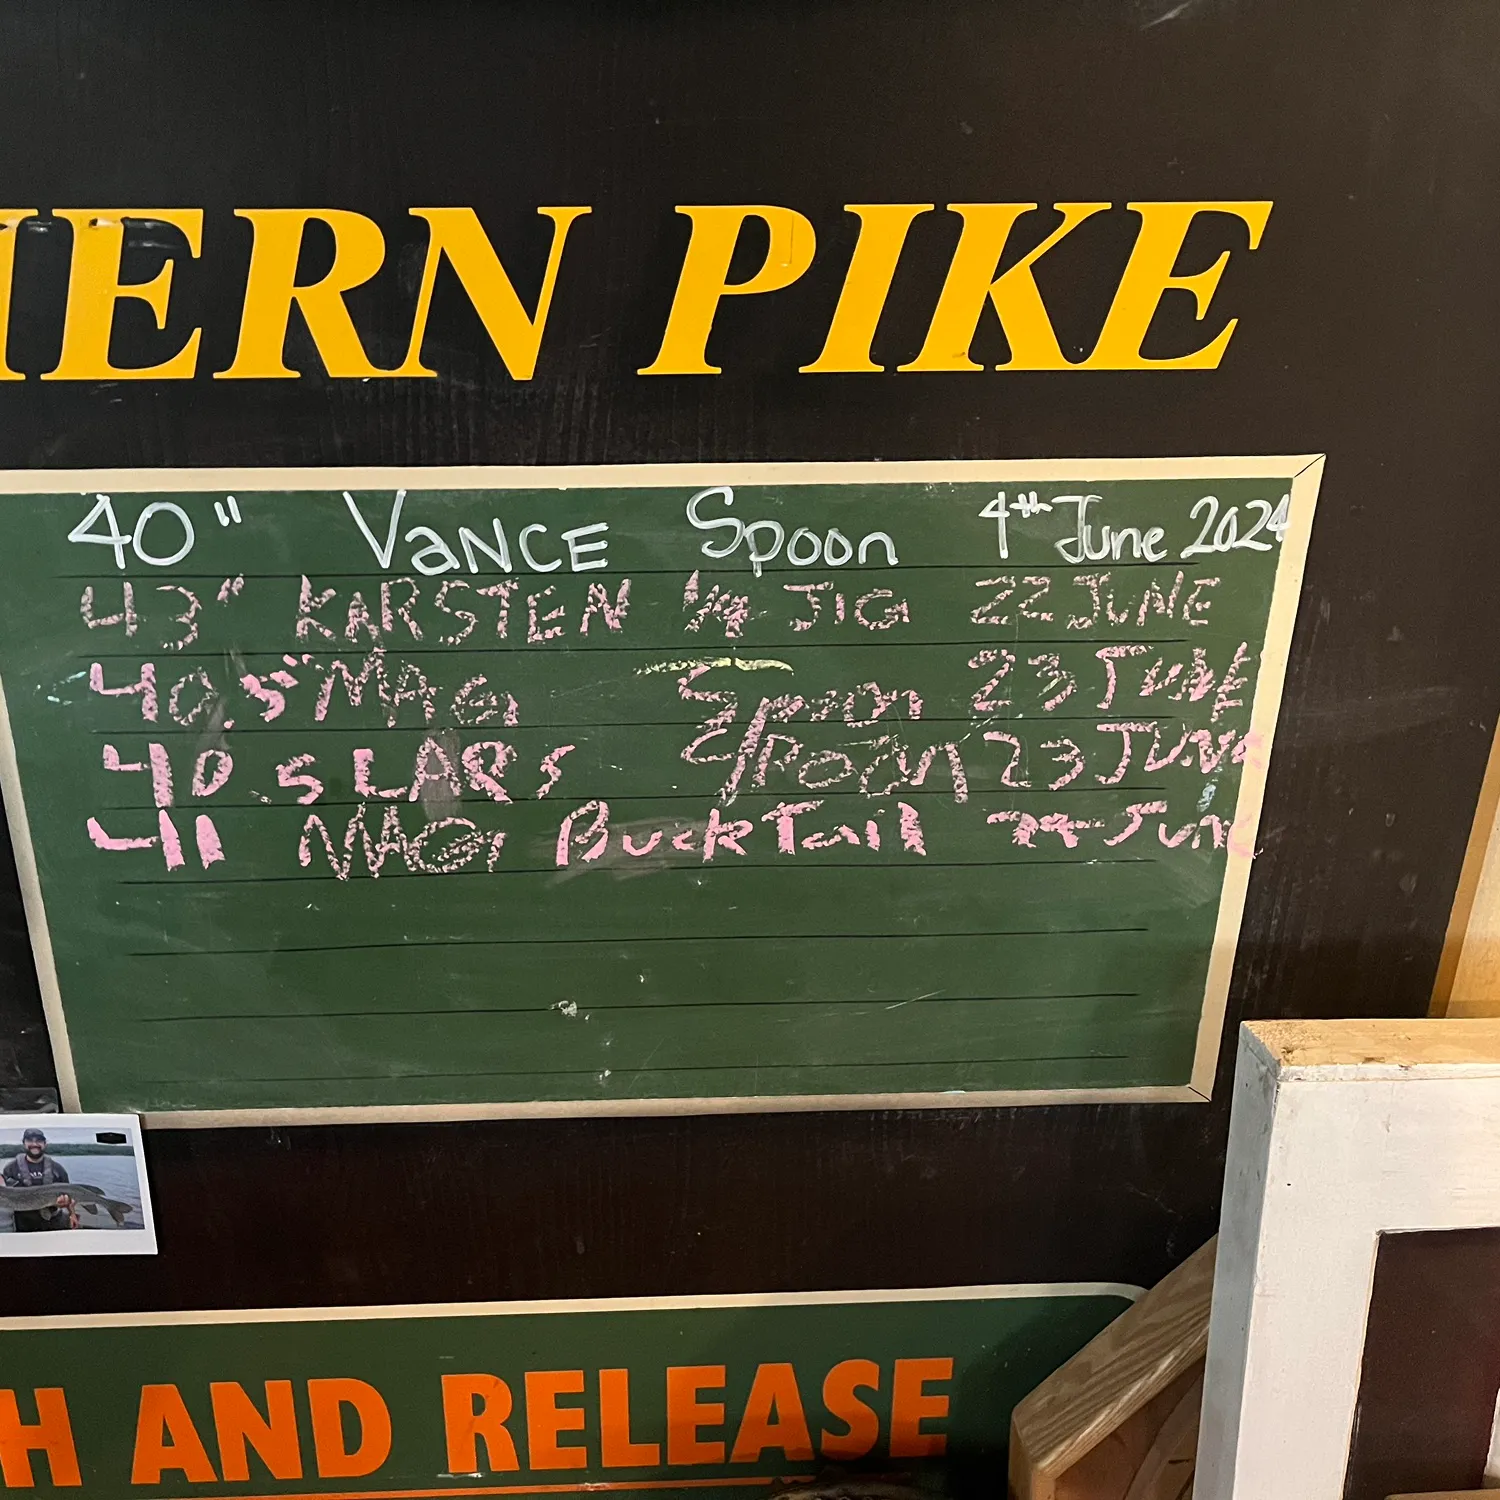 HERN PIKE
40" VANCE Spoon 4th June 2024
43" KARSTEN 1/4 JIG 22 JUNE
40.5" MAGI Spoon 23 JUNE
40.5 LARS SPOON 23 JUNE
41 MAGI BuckTail June
H AND RELEASE